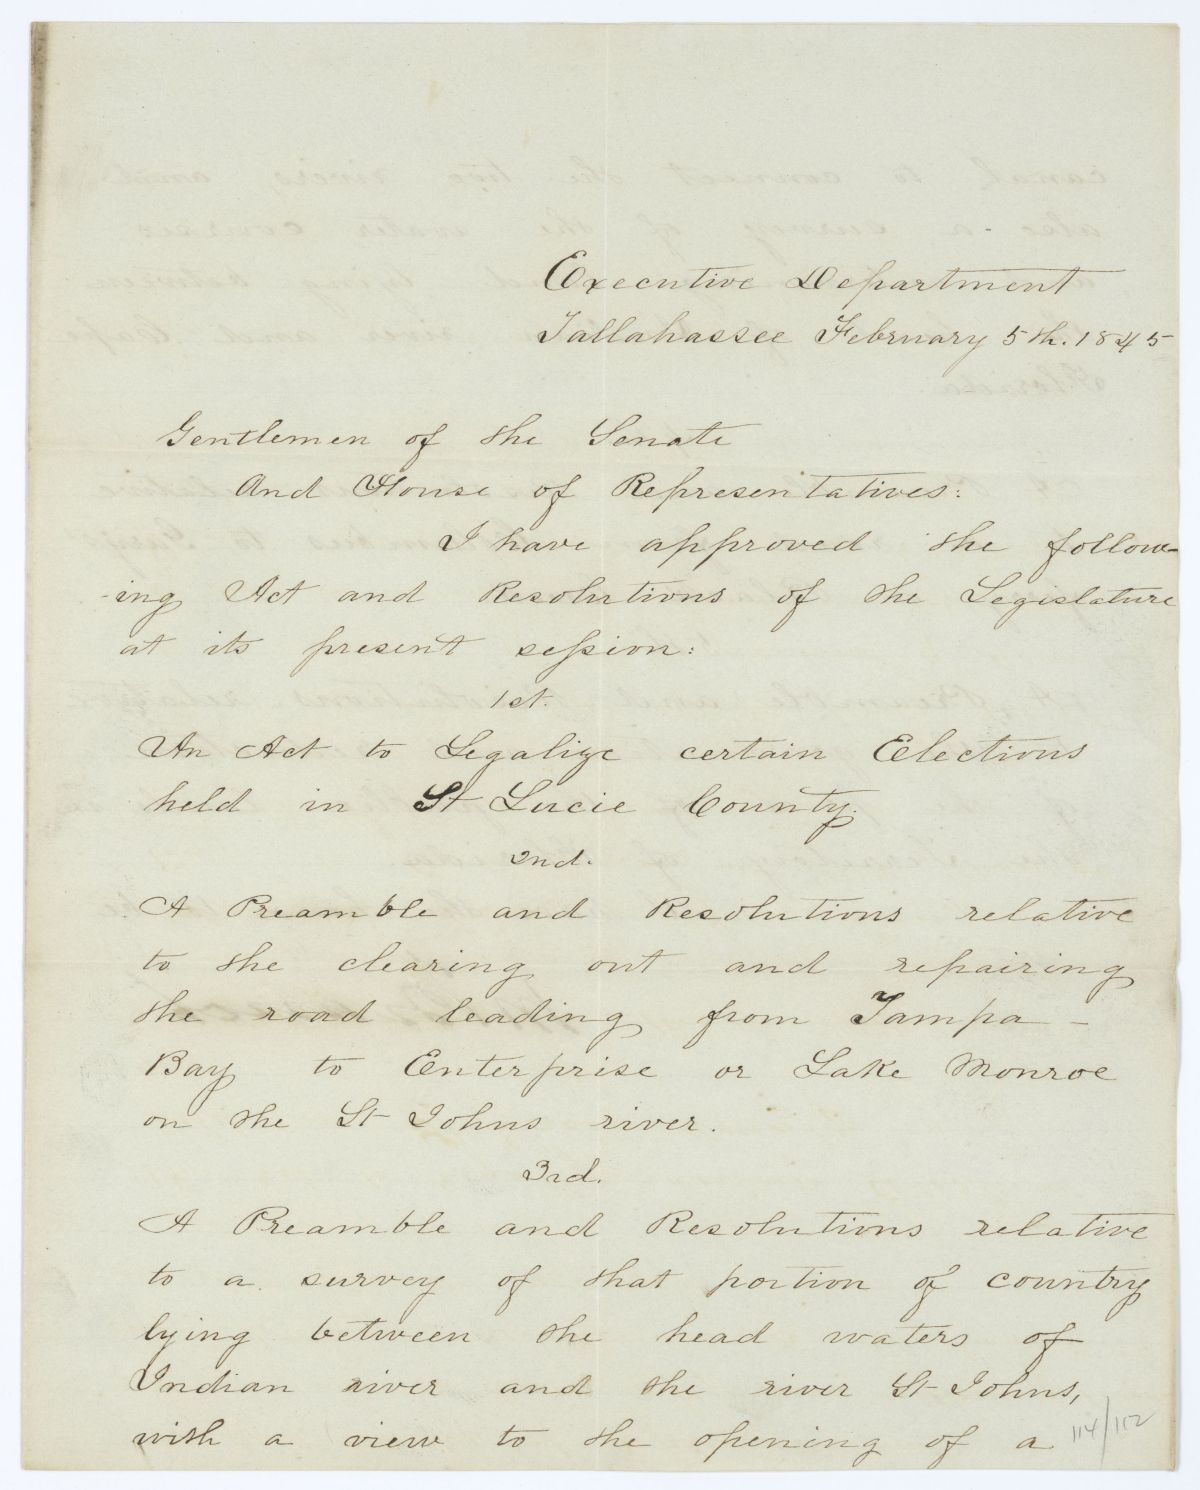 Executive Department
Tallahassee February 5th. 1845
Gentlemen of the Senate
And House of Representatives:
I have approved the follow-
-ing Act and Resolutions of the Legislature
at its present session:
1st.
An Act to Legalize certain Elections
held in St Lucie County.
2nd.
A Preamble and Resolutions relative
to the clearing out and repairing
the road leading from Tampa -
Bay to Enterprise or Lake Monroe
on the St Johns river.
3rd.
A Preamble and Resolutions relative
to a survey of that portion of country
lying between the head waters of
Indian river and the river St Johns,
with a view to the opening of a
114/112